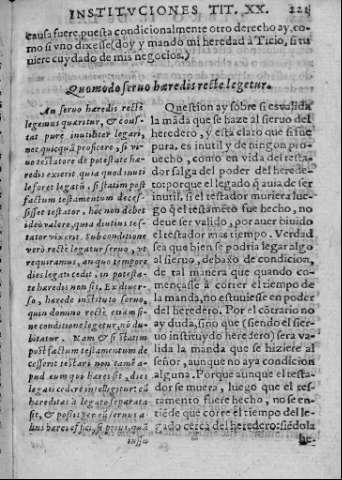 INSTITVCIONES TIT. XX. 221
causa fuere puesta condicionalmente otro derecho ay, co-
mo si vno dixesse (doy y mando mi heredad à Ticio, si tu
uiere cuydado de mis negocios.)
Quomodo seruo hæredis recte legetur.
An seruo hæredis rectè
legemus quæritur, & cons-
tat purè inutiliter legari,
nec quicquã proficere, si vi-
uo testatore de potestate hæ-
redis exierit quia quod inuti
le foret legatũ, si statim post
factum testamentum deces-
sisset testator, hoc non debet
ideò valere, quia diutius tes-
tator vixerit. Sub conditione
verò rectè legatur seruo, vt
requiramus, an quo tempore
dies legati cedit, in potesta-
te hæredis non sit. Ex diuer-
so, hærede instituto seruo,
quin domino rectè etiam si-
ne conditione legetur, nõ du-
bitatur. Nam & si statim
post factum testamentum de-
cesserit testator non tamẽ a-
pud eum qui hæres sit, dies
legati cedere intelligitur: cũ
hæreditas à legato separata
sit, & possit per eũ seruum a-
lius hæres effici, si prius, quã
iussu
Question ay sobre si es valida
la mãda que se haze al sieruo del
heredero, y està claro que si fue
pura, es inutil y de ningon pro-
uecho, como en vida del testa-
dor salga del poder del herede-
ro: porque el legado q̃ auia de ser
inutil, si el testador muriera lue-
go q̃ el testamẽto fue hecho, no
deue ser valido, por auer biuido
el testador mas tiempo. Verdad
sea que bien se podria legar algo
al sieruo, debaxo de condicion,
de tal manera que quando co-
mençasse à correr el tiempo de
la manda, no estuuiesse en poder
del heredero. Por el cõtrario no
ay duda, sino que (siendo el sier-
uo instituydo heredero) sera va-
lida la manda que se hiziere al
señor, aunque no aya condicion
alguna. Porque aunque el testa-
dor se muera, luego que el tes-
tamento fuere hecho, no se en-
tiẽde que corre el tiempo del le-
gado cerca del heredero: siẽdo la
he-